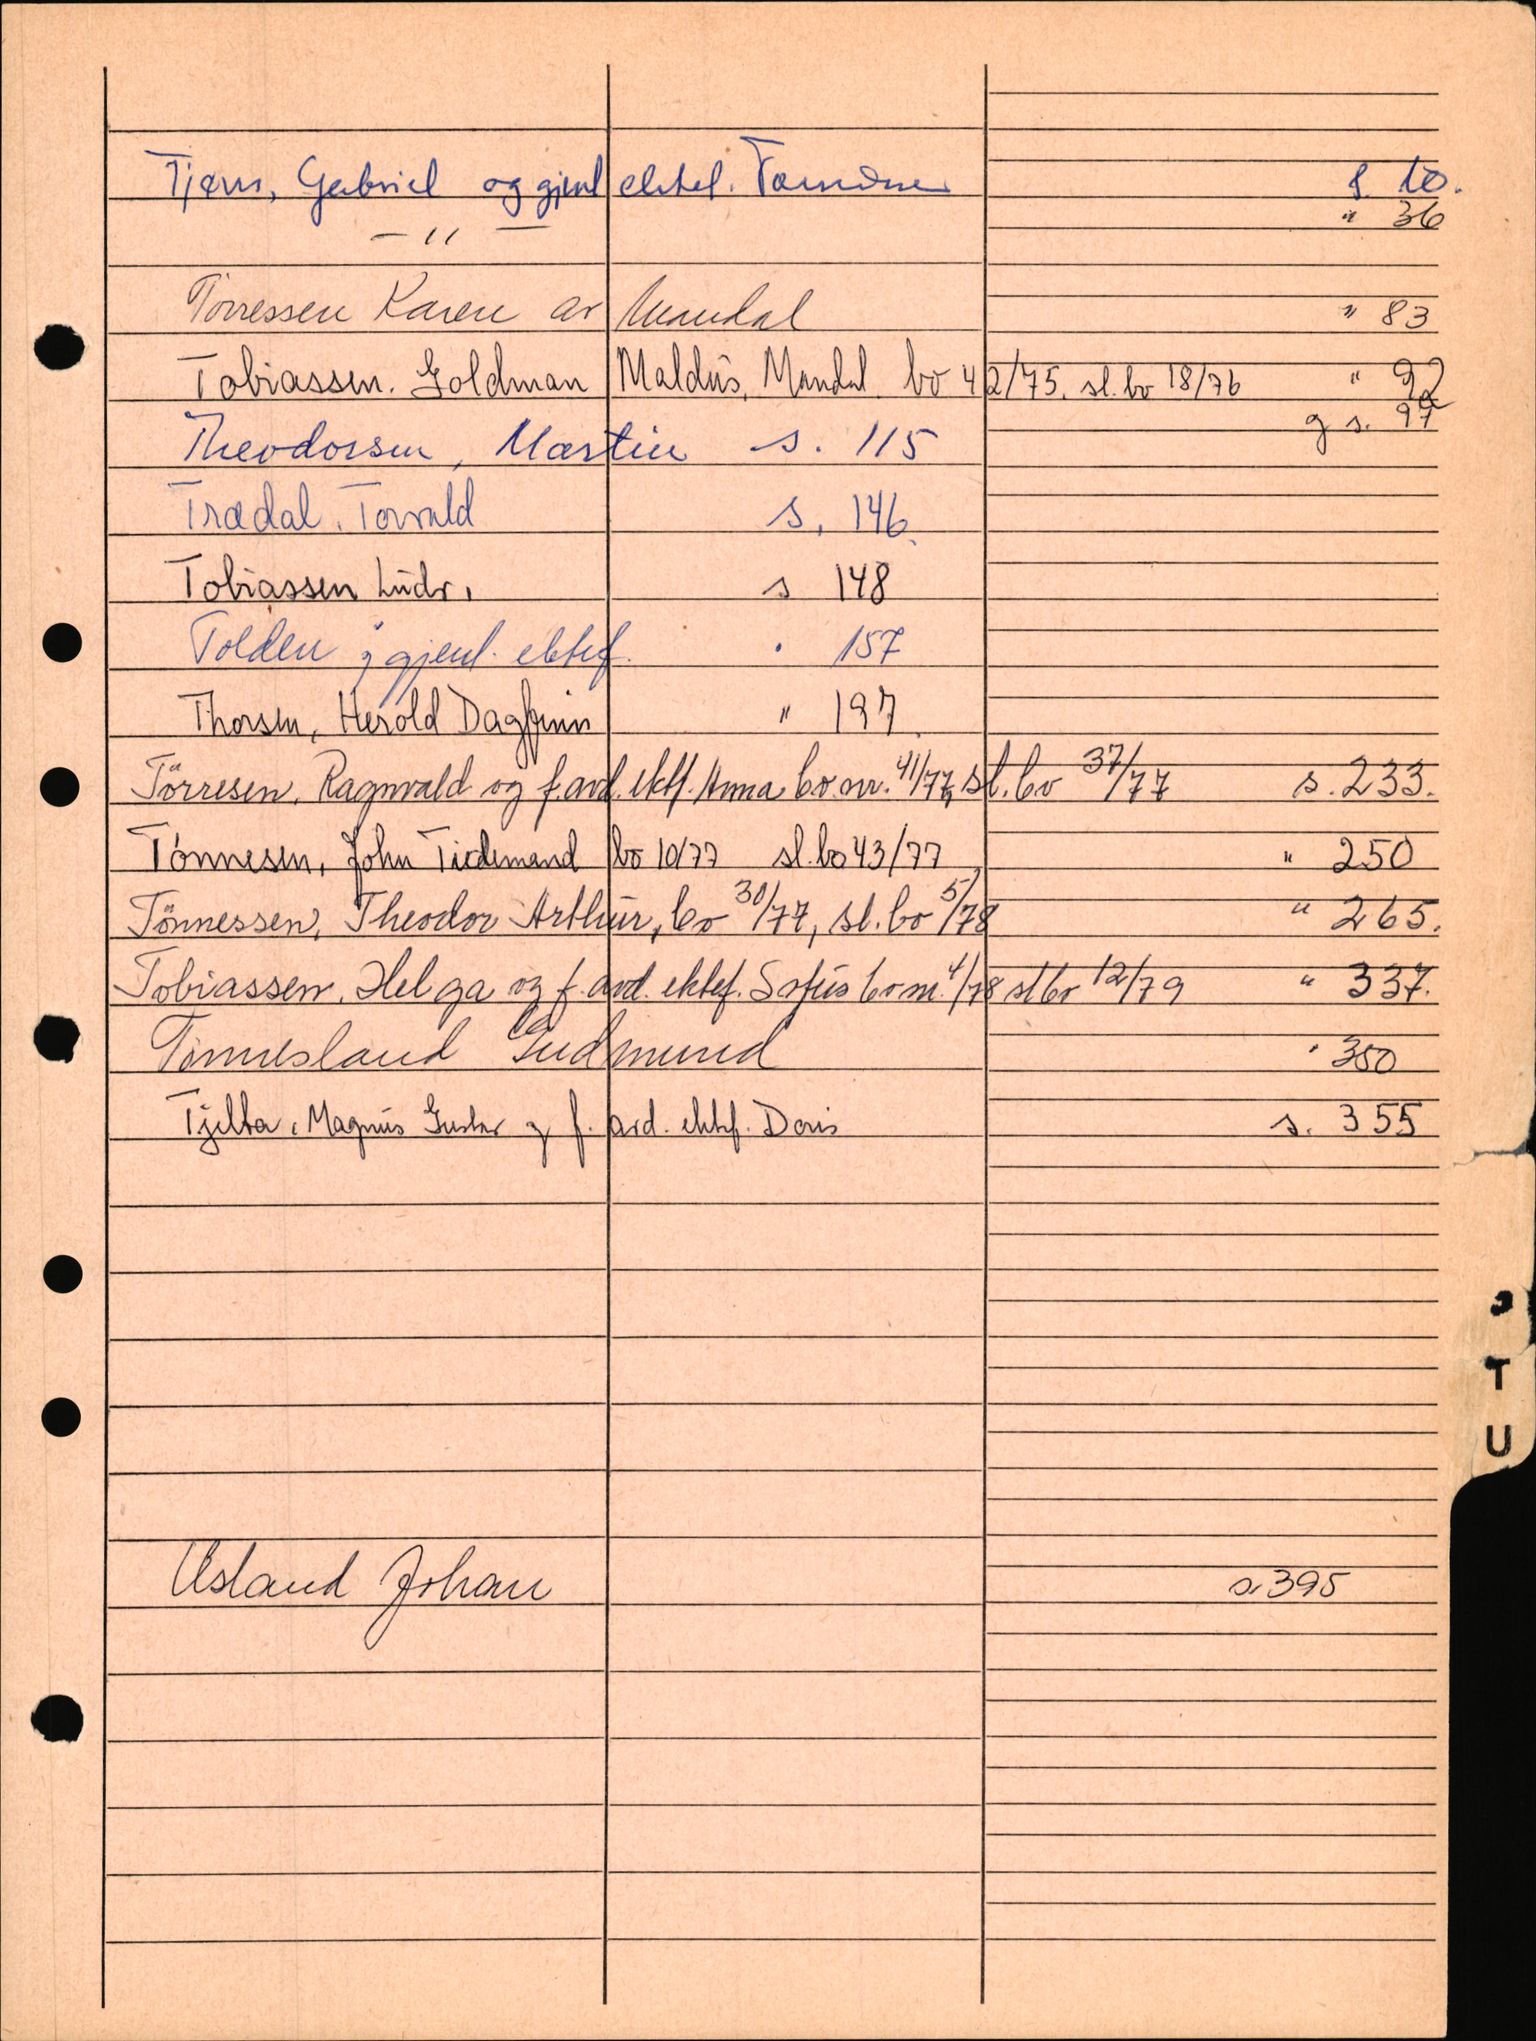 Tjøm, Gabriel og gjenl ektef. s. 10.
— " — " 36
Tørressen Karen av Mandal " 83
Tobiassen. Goldman Maldus, Mandal. bo 42/75, sl. bo 18/76 " 92
og s. 97
Theodorsen, Martin s. 115
Trædal. Torvald s. 146.
Tobiassen Ludv. s 148
Tolden og gjenl. ektef. " 157
Thorsen, Herold Dagfinn " 197.
Törresen, Ragnvald og f.avd. ektf. Anna bo nr. 41/77, sl. bo 37/77 s. 233.
Tönnesen, John Tidemand bo 10/77 sl. bo 43/77 " 250
Tönnessen, Theodor Arthur, bo 30/77, sl. bo 5/78 " 265.
Tobiassen, Helga og f. avd. ektef. Sofus bo nr. 4/78 sl bo 12/79 " 337.
Tønnesland Gudmund " 350
Tjelta, Magnus Gustav og f. avd. ektef. Doris s. 355
T
U
Usland Johan s. 395